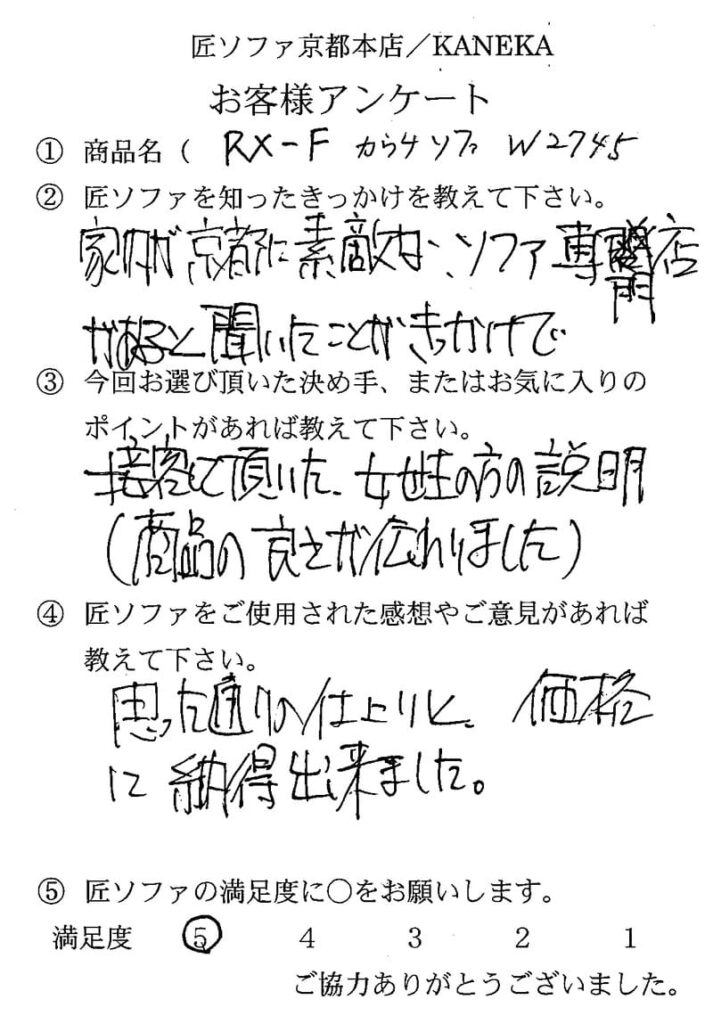 匠ソファ京都本店/KANEKA
お客様アンケート
① 商品名( RX-F カウチソファ W2745
② 匠ソファを知ったきっかけを教えて下さい。
家内が京都に素敵な、ソファ専門店
があると聞いたことがきっかけで
③ 今回お選び頂いた決め手、またはお気に入りの
ポイントがあれば教えて下さい。
接客して頂いた、女性の方の説明
(商品の良さが伝わりました)
④ 匠ソファをご使用された感想やご意見があれば
教えて下さい。
思った通りの仕上りと、価格
に納得出来ました。
⑤ 匠ソファの満足度に○をお願いします。
満足度 5 4 3 2 1
ご協力ありがとうございました。